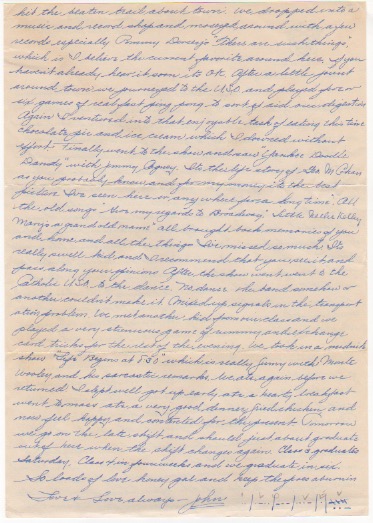 hit the beaten trail about town. We dropped into a
music and record shop and messed around with a few
records especially Tommy Dorsey's "there are such things,"
which is I believe the current favorite around here. If you
haven't already, hear it soon, its OK. After a little jaunt
around town we journeyed to the U.S.O. and played five or
six games of real fast ping pong, to sort of aid our digestion
Again I ventured into that enjoyable task of eating this time
chocolate pie and ice cream which I downed without
effort. Finally went to the show and saw "Yankee Doodle
Dandy" with Jimmy Cagney. Its the life story of Geo M Cohan
as you probably know and for my money its the best
picture I've seen here or any where for a long time. All
the old songs, "Give my regards to Broadway," "Little Nellie Kelley
"Mary's a grand old name" all brought back memories of you
and home and all the things I've missed so much. Its
really swell kid, and I recommend that you see it and
pass along your opinion. After the show went went to the
Catholic U.S.O. to the dance. No dance the band somehow or
another couldn't make it. Mixed up signals in the transport
ation problem. We met another kid from our class and we
played a very strenuous game of rummy and exchange
card tricks for the rest of the evening. We took in a midnite
show "Life Begins at 8:30" which is really funny with Monte
Wooley and his sarcastic remarks. We ate again before we
returned. I slept well got up early ate a hearty breakfast
went to mass ate a very good dinner, fried chicken, and
now feel happy and contented for the present. Tomorrow
we go on the late shift and should just about graduate
when the shift changes again. Class 3 graduates
Saturday, Class 4 in four weeks and we graduate in six.
So loads of love honey gal and keep the fires aburnin
Love & Love always - John